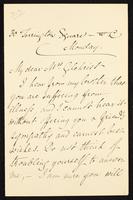 30 Torrington Square — W.C.
Monday.
My dear Mrs Gilchrist
I hear from my brother that
you are suffering from
illness, and I cannot hear it
without offering you a friend's
sympathy and cannot
wishes. Do not think of
troubling yourself to answer
me, I am sure you will